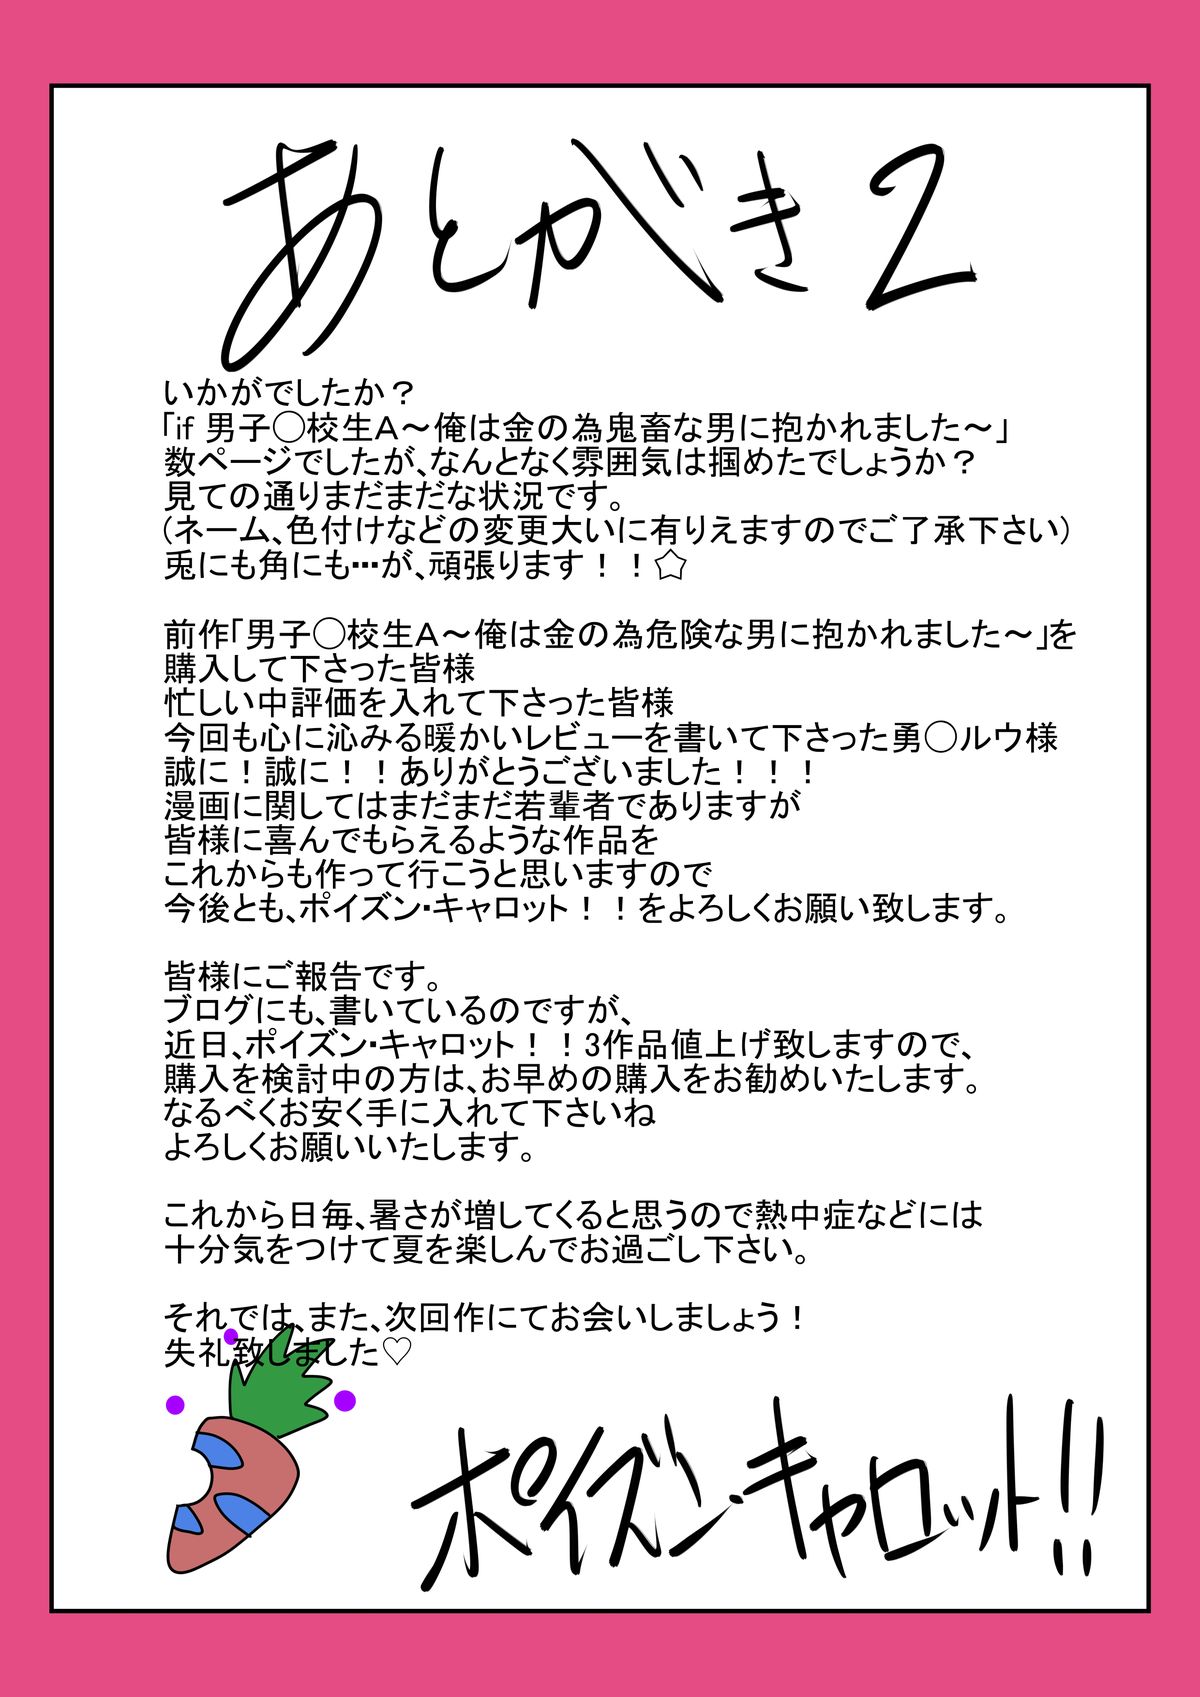 あとがき2
いかがでしたか？
「if 男子◯校生Ａ～俺は金の為鬼畜な男に抱かれました～」
数ページでしたが、なんとなく雰囲気は掴めたでしょうか？
見ての通りまだまだな状況です。
(ネーム、色付けなどの変更大いに有りえますのでご了承下さい)
兎にも角にも…が、頑張ります！！☆
前作「男子◯校生Ａ～俺は金の為危険な男に抱かれました～」を
購入して下さった皆様
忙しい中評価を入れて下さった皆様
今回も心に沁みる暖かいレビューを書いて下さった勇◯ルウ様
誠に！誠に！！ありがとうございました！！！
漫画に関してはまだまだ若輩者でありますが
皆様に喜んでもらえるような作品を
これからも作って行こうと思いますので
今後とも、ポイズン・キャロット！！をよろしくお願い致します。
皆様にご報告です。
ブログにも、書いているのですが、
近日、ポイズン・キャロット！！3作品値上げ致しますので、
購入を検討中の方は、お早めの購入をお勧めいたします。
なるべくお安く手に入れて下さいね
よろしくお願いいたします。
これから日毎、暑さが増してくると思うので熱中症などには
十分気をつけて夏を楽しんでお過ごし下さい。
それでは、また、次回作にてお会いしましょう！
失礼致しました♡
ポイズン・キャロット!!